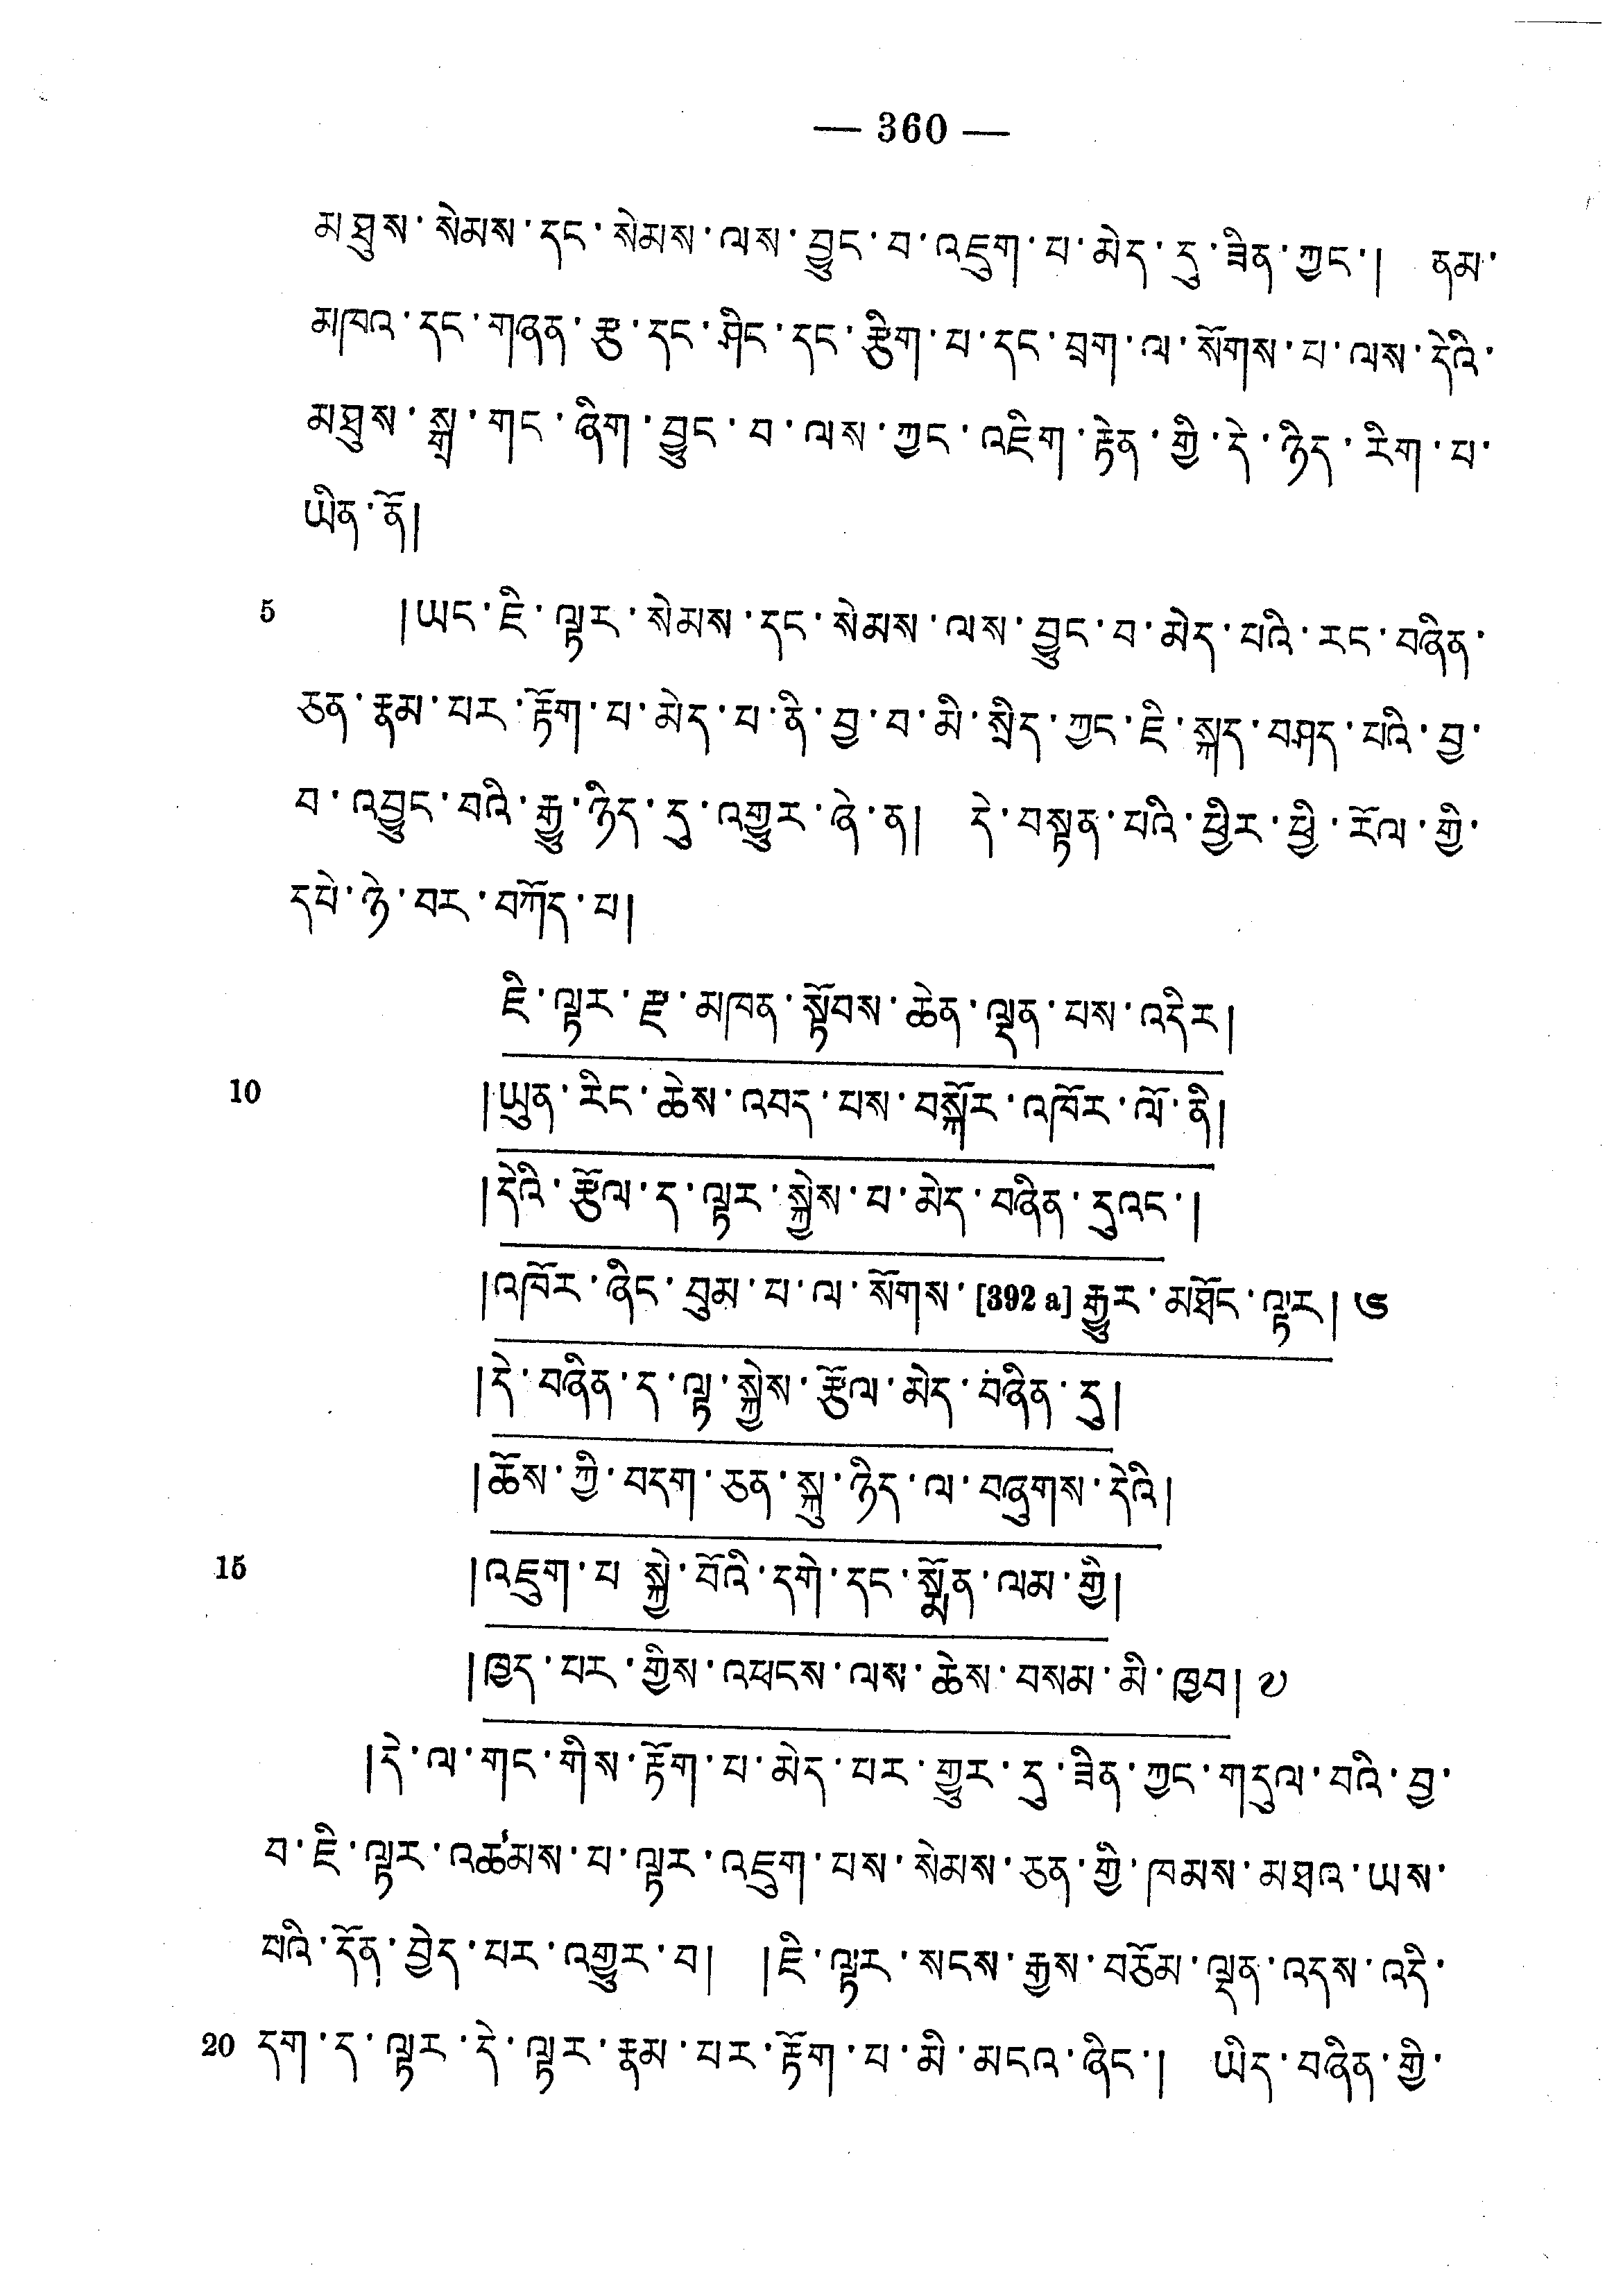 — 360 —
མཐུས་སེམས་དང་སེམས་ལས་བྱུང་བ་འཇུག་པ་མེད་དུ་ཟིན་ཀྱང་། ནམ་
མཁའ་དང་གཞན་རྩྭ་དང་ཤིང་དང་རྩིག་པ་དང་བྲག་ལ་སོགས་པ་ལས་དེའི་
མཐུས་སྒྲ་གང་ཞིག་བྱུང་བ་ལས་ཀྱང་འཇིག་རྟེན་གྱི་དེ་ཉིད་རིག་པ་
ཡིན་ནོ།
5 །ཡང་ཇི་ལྟར་སེམས་དང་སེམས་ལས་བྱུང་བ་མེད་པའི་རང་བཞིན་
ཅན་རྣམ་པར་རྟོག་པ་མེད་པ་ནི་བྱ་བ་མི་སྲིད་ཀྱང་ཇི་སྐད་བཤད་པའི་བྱ་
བ་འབྱུང་བའི་རྒྱུ་ཉིད་དུ་འགྱུར་ཞེ་ན། དེ་བསྟན་པའི་ཕྱིར་ཕྱི་རོལ་གྱི་
དཔེ་ཉེ་བར་བཀོད་པ།
ཇི་ལྟར་རྫ་མཁན་སྟོབས་ཆེན་ལྡན་པས་འདིར།
10 །ཡུན་རིང་ཆེས་འབད་པས་བསྐོར་འཁོར་ལོ་ནི།
།དེའི་རྩོལ་ད་ལྟར་སྐྱེས་པ་མེད་བཞིན་དུའང་།
།འཁོར་ཞིང་བུམ་པ་ལ་སོགས་[392 a] རྒྱུར་མཐོང་ལྟར། ༦
།དེ་བཞིན་ད་ལྟ་སྐྱེས་རྩོལ་མེད་བཞིན་དུ།
།ཆོས་ཀྱི་བདག་ཅན་སྐུ་ཉིད་ལ་བཞུགས་དེའི།
15 །འཇུག་པ སྐྱེ་བོའི་དགེ་དང་སྨོན་ལམ་གྱི།
།ཁྱད་པར་གྱིས་འཕངས་ལས་ཆེས་བསམ་མི་ཁྱབ། ༧
།དེ་ལ་གང་གིས་རྟོག་པ་མེད་པར་གྱུར་དུ་ཟིན་ཀྱང་གདུལ་བའི་བྱ་
བ་ཇི་ལྟར་འཚམས་པ་ལྟར་འཇུག་པས་སེམས་ཅན་གྱི་ཁམས་མཐའ་ཡས་
པའི་དོན་བྱེད་པར་འགྱུར་བ། །ཇི་ལྟར་སངས་རྒྱས་བཅོམ་ལྡན་འདས་འདི་
20 དག་ད་ལྟར་དེ་ལྟར་རྣམ་པར་རྟོག་པ་མི་མངའ་ཞིང་། ཡིད་བཞིན་གྱི་